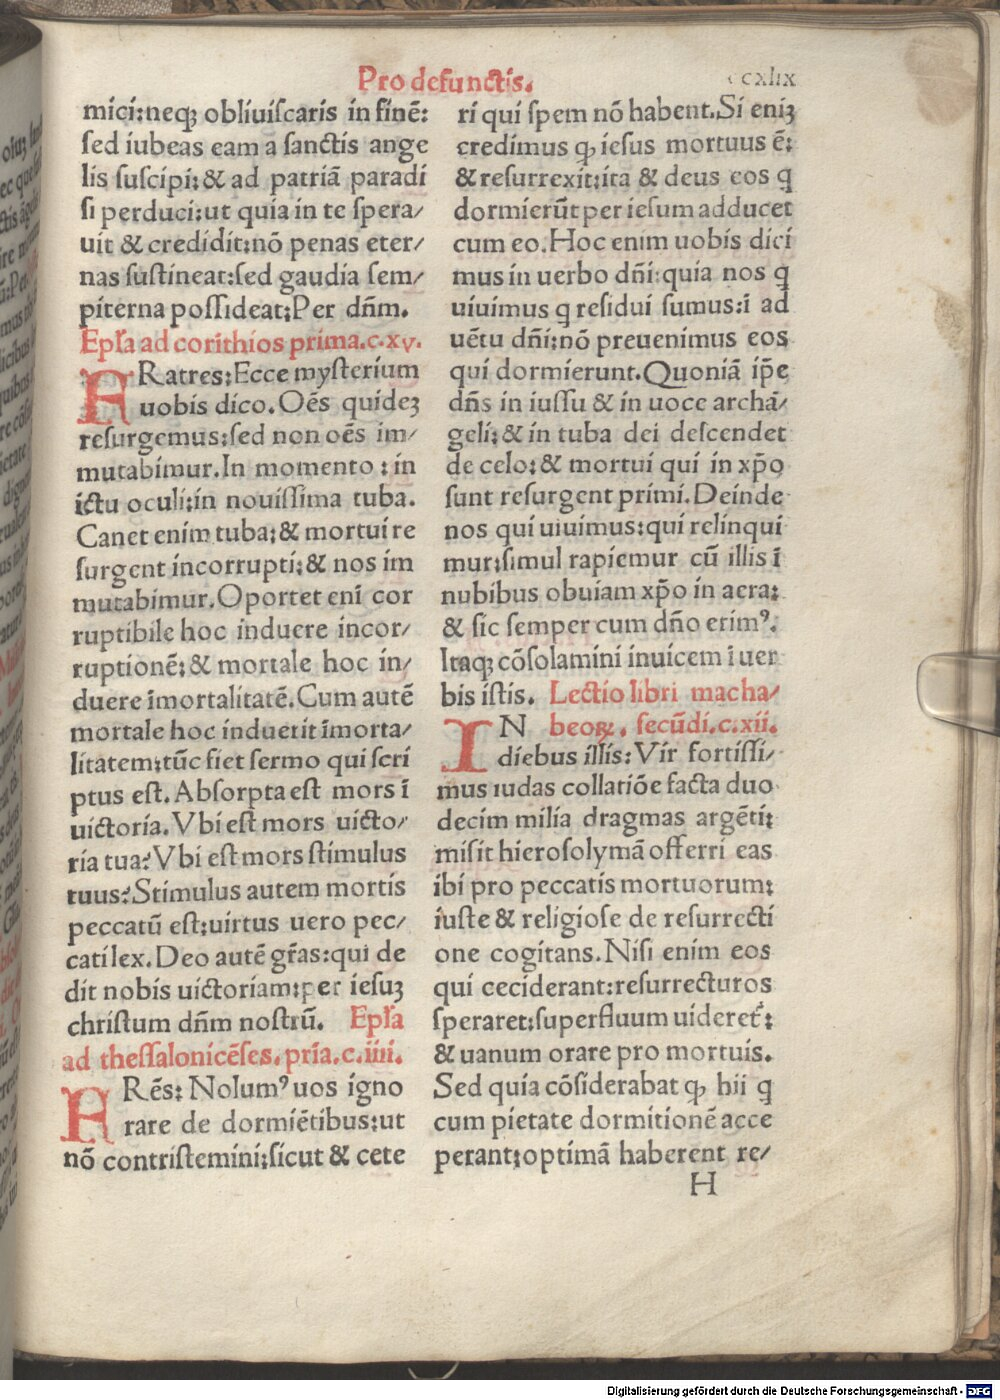 Pro defunctis.
ccxlix
mici:neqꝫ obliuiſcaris in finē:
ſed iubeas eam a ſanctis ange
lis ſuſcipi:& ad patriā paradi
ſi perduci:ut quia in te ſpera/
uit & credidit:nō penas eter/
nas ſuſtineat:ſed gaudia ſem/
piterna poſſideat:Per dn̄m.
Epl̄a ad corīthios prima.c.xv.
FRatres:Ecce myſterium
uobis dico.Oēs quideꝫ
reſurgemus:ſed non oēs im/
mutabimur.In momento : in
ictu oculi:in nouiſſima tuba.
Canet enim tuba:& mortui re
ſurgent incorrupti:& nos im
mutabimur.Oportet enī cor
ruptibile hoc induere incor/
ruptionē:& mortale hoc in/
duere īmortalitatē.Cum autē
mortale hoc induerit īmorta/
litatem:tūc fiet ſermo qui ſcri
ptus eſt.Abſorpta eſt mors ī
uictoria.Vbi eſt mors uicto/
ria tua?Vbi eſt mors ſtimulus
tuus?Stimulus autem mortis
peccatū eſt:uirtus uero pec/
cati lex.Deo autē gr̄as:qui de
dit nobis uictoriam:per ieſuꝫ
chriſtum dn̄m noſtrū. Epl̄a
ad theſſalonicēſes.pría.c.iiii.
FRēs: Nolumꝰ uos igno
rare de dormiētibus:ut
nō contriſtemini:ſicut & cete
ri qui ſpem nō habent.Si eniꝫ
credimus ꝙ ieſus mortuus ē:
& reſurrexit:ita & deus eos q̄
dormierūt per ieſum adducet
cum eo.Hoc enim uobis dici
mus in uerbo dn̄i:quia nos q̄
uiuimus q̄ reſidui ſumus:ī ad
uētu dn̄i:nō preuenimus eos
qui dormierunt.Quoniā ip̄e
dn̄s in iuſſu & in uoce archā/
geli:& in tuba dei deſcendet
de celo:& mortui qui in xp̄o
ſunt reſurgent primi.Deinde
nos qui uiuimus:qui relinqui
mur:ſimul rapiemur cū illis ī
nubibus obuiam xp̄o in aera:
& ſic ſemper cum dn̄o erimꝰ.
Itaqꝫ cōſolamini inuicem ī uer
bis iſtis. Lectio libri macha/
beoꝝ. ſecūdi.c.xii.
IN
diebus illis: Vir fortiſſi/
mus iudas collatiōe facta duo
decim milia dragmas argēti:
miſit hieroſolymā offerri eas
ibi pro peccatis mortuorum:
iuſte & religioſe de reſurrecti
one cogitans.Niſi enim eos
qui ceciderant:reſurrecturos
ſperaret:ſuperfluum uideret᷑:
& uanum orare pro mortuis.
Sed quia cōſiderabat ꝙ hii q̄
cum pietate dormitionē acce
perant:optimā haberent re/
H
Digitalisierung gefördert durch die Deutsche Forschungsgemeinschaft - DFG